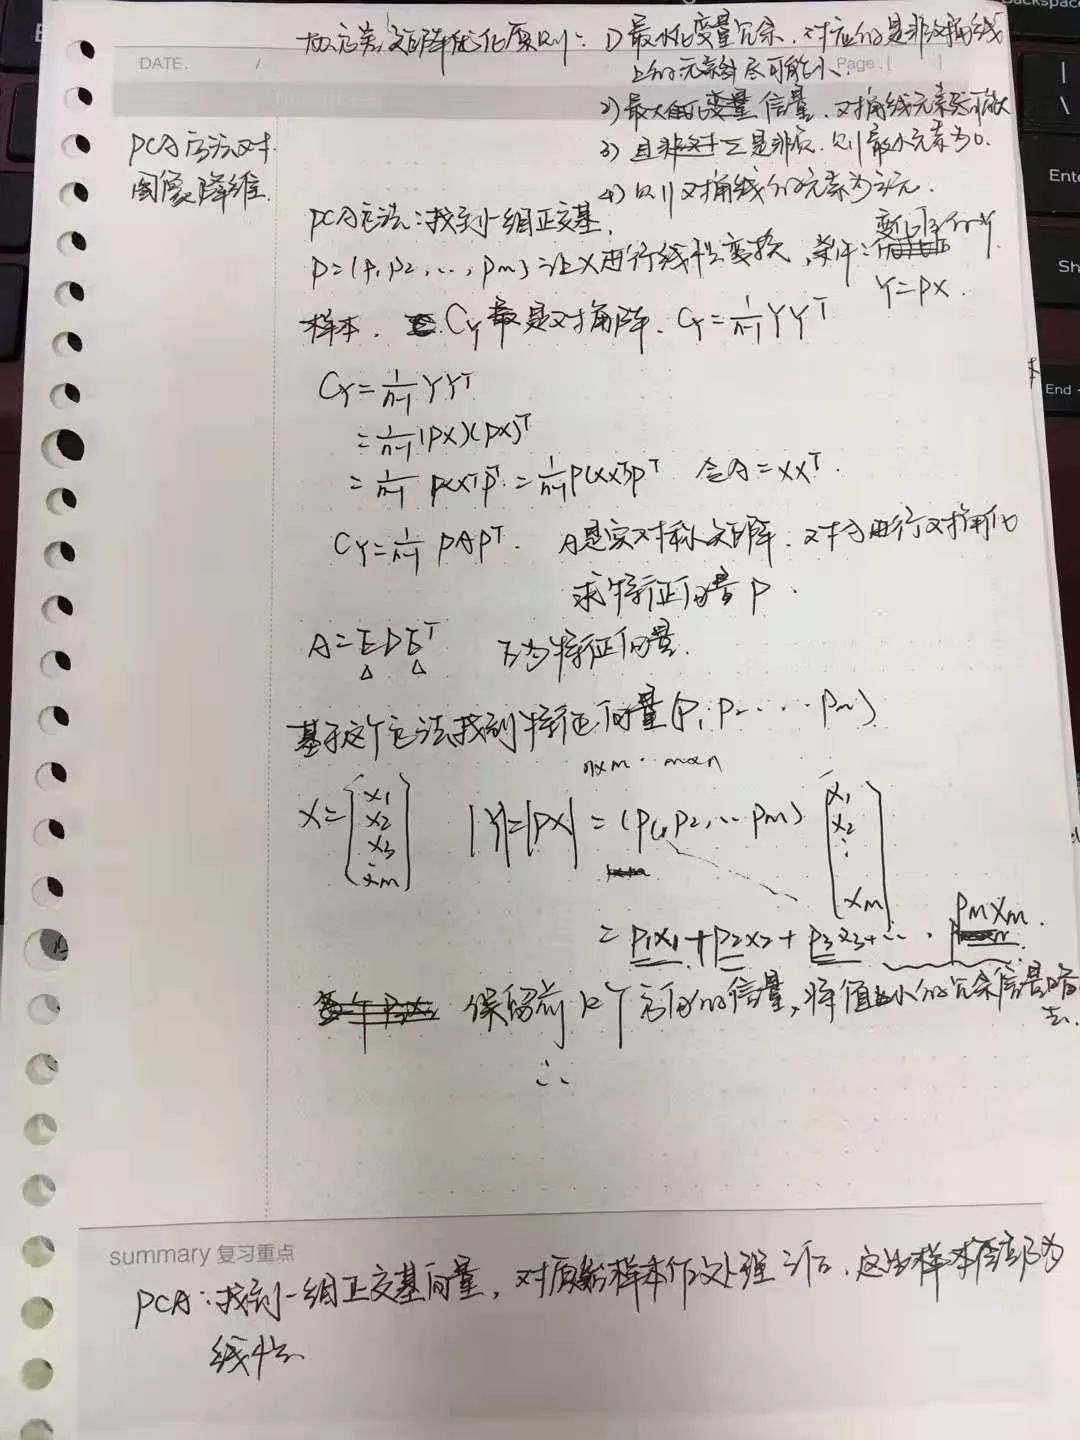 协方差矩阵优化原则: 1) 最小化变量冗余. 对应的是非对角线
上的元素尽可能小.
DATE. / Page. [ ]
2) 最大化变量信量. 对角线元素尽可能大
3) 且非对 是非负. 则最小元素为0.
4) 则对角线的元素为主元.
PCA方法对
图像降维.
PCA方法: 找到一组正交基.
P=(P1 P2, ..., Pm) 让X进行线性变换, 条件: 变比后的Y
Y=PX.
样本. CY 是对角阵. CY=1/(n-1) YY^T
CY=1/(n-1) YY^T
=1/(n-1) (PX)(PX)^T
=1/(n-1) PXX^TP^T = 1/(n-1) P(XX^T)P^T 令A=XX^T.
CY=1/(n-1) PAP^T. A是实对称矩阵. 对 进行对角化
求特征向量P.
A=EDE^T E为特征向量.
基于这个方法找到特征向量(P1 P2 .... Pm)
nxm . mxn
X= [x1 x2 x3 : xm] |Y|=|PX| = (P1, P2, ... Pm) [x1 x2 : xm]
= P1X1+P2X2+P3X3+... . PmXm.
保留前K个方向的信量, 将值小的冗余信息略
去.
∴
summary 复习重点
PCA: 找到一组正交基向量, 对原始样本作处理 后. 样本 为
线性.